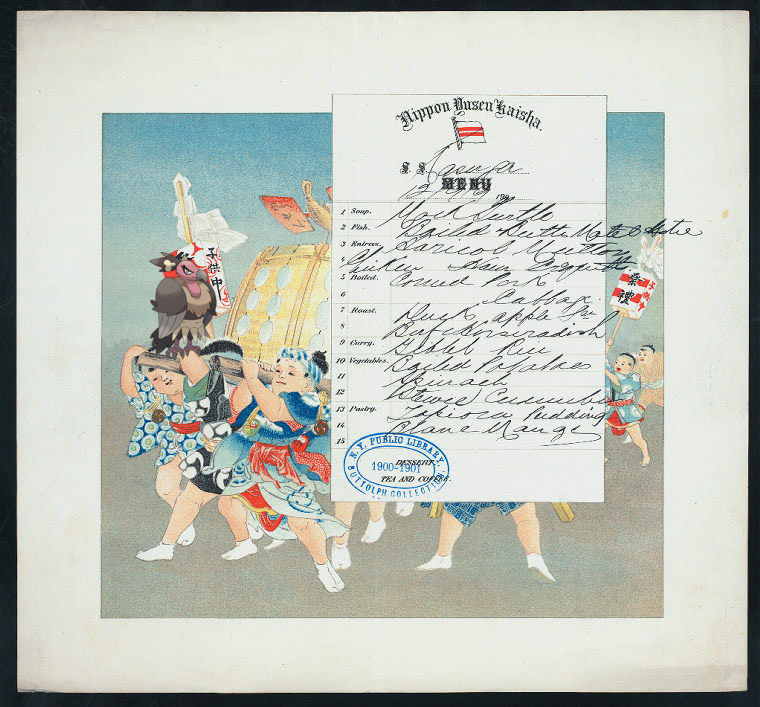 Nippon Yusen Kaisha.
S. S.
MENU
190
1 Soup. Mock Turtle
2 Fish. Boiled
3 Entrees. Haricot Mutton
4 Chicken
5 Boiled. Corned Pork
6 Cabbage
7 Roast. Duck apple
8 Beef Horseradish
9 Curry. Giblet Rice
10 Vegetables. Boiled Potatoes
11 Spinach
12 Stewed Cucumber
13 Pastry. Tapioca Pudding
14 Blanc Mange
15
DESSERT.
TEA AND COFFEE.
N.Y. PUBLIC LIBRARY
1900-1901
BUTTOLPH COLLECTION
子供中
祭禮